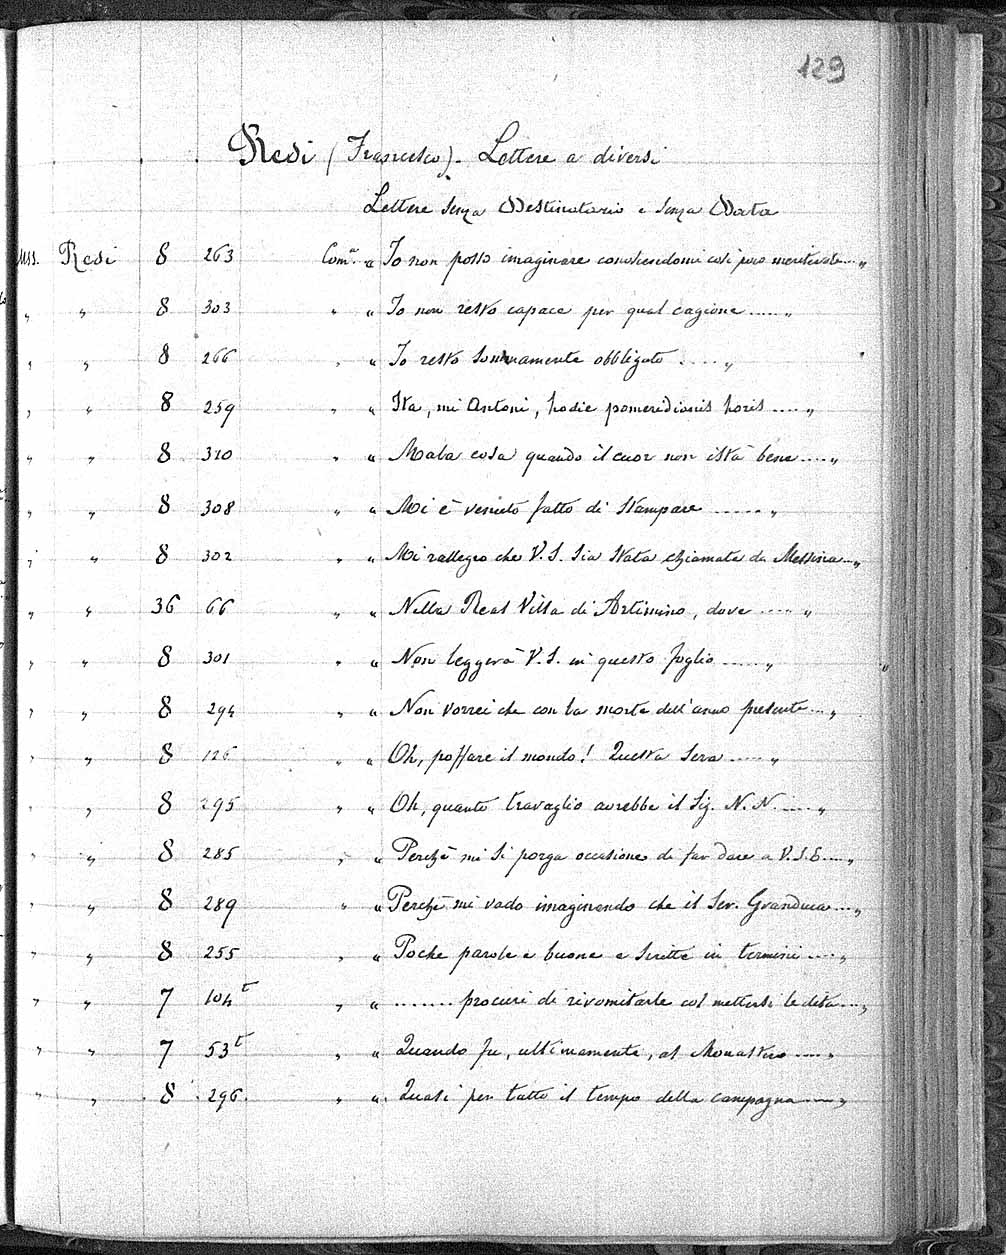 129
Redi (Francesco). Lettere a diversi
Lettere senza Destinatario e senza Data
Mss. Redi 8 263 Com.ª " Io non posso imaginare conoscendomi così poco meritevole ... "
" " 8 303 " " Io non resto capace per qual cagione ..... "
" " 8 266 " " Io resto sommamente obbligato .... "
" " 8 259 " " Ita, mi Antoni, hodie pomeridianis horis .... "
" " 8 310 " " Mala cosa quando il cuor non istà bene .... "
" " 8 308 " " Mi è venuto fatto di stampare ...... "
" " 8 302 " " Mi rallegro che V. S. sia stata chiamata da Messina ... "
" " 36 66 " " Nella Real Villa di Artimino, dove .... "
" " 8 301 " " Non leggerà V. S. in questo foglio ..... "
" " 8 294 " " Non vorrei che con la morte dell'anno presente ... "
" " 8 126 " " Oh, poffare il mondo! Questa sera .... "
" " 8 295 " " Oh, quanto travaglio avrebbe il Sig. N. N. .... "
" " 8 285 " " Perchè mi si porga occasione di far dare a V. S. E. .... "
" " 8 289 " " Perchè mi vado imaginando che il Ser. Granduca ... "
" " 8 255 " " Poche parole e buone e scritte in termini .... "
" " 7 104t " " ....... procuri di rivomitarle col mettersi le dita ... "
" " 7 53t " " Quando fu, ultimamente, al Monastero .... "
" " 8 296 " " Quasi per tutto il tempo della campagna .... "